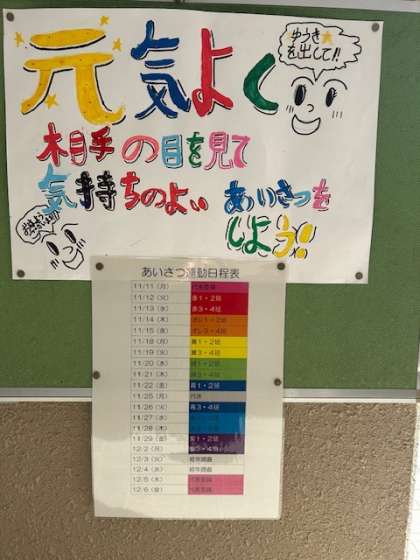 元気よく
ゆうき
を出して!!
相手の目を見て
気持ちのよい あいさつを
しよう!
あいさつ運動日程表
11/11 (月)
11/12 (火) 赤1・2組
11/13 (水) 赤3・4組
11/14 (木) オレ1・2組
11/15 (金) オレ3・4組
11/18 (月) 黄1・2組
11/19 (火) 黄3・4組
11/20 (水) 緑1・2組
11/21 (木) 緑3・4組
11/22 (金) 青1・2組
11/25 (月) 代休
11/26 (火) 青3・4組
11/27 (水)
11/28 (木)
11/29 (金) 紫1・2組
12/2 (月) 紫3・4組
12/3 (火)
12/4 (水)
12/5 (木)
12/6 (金)